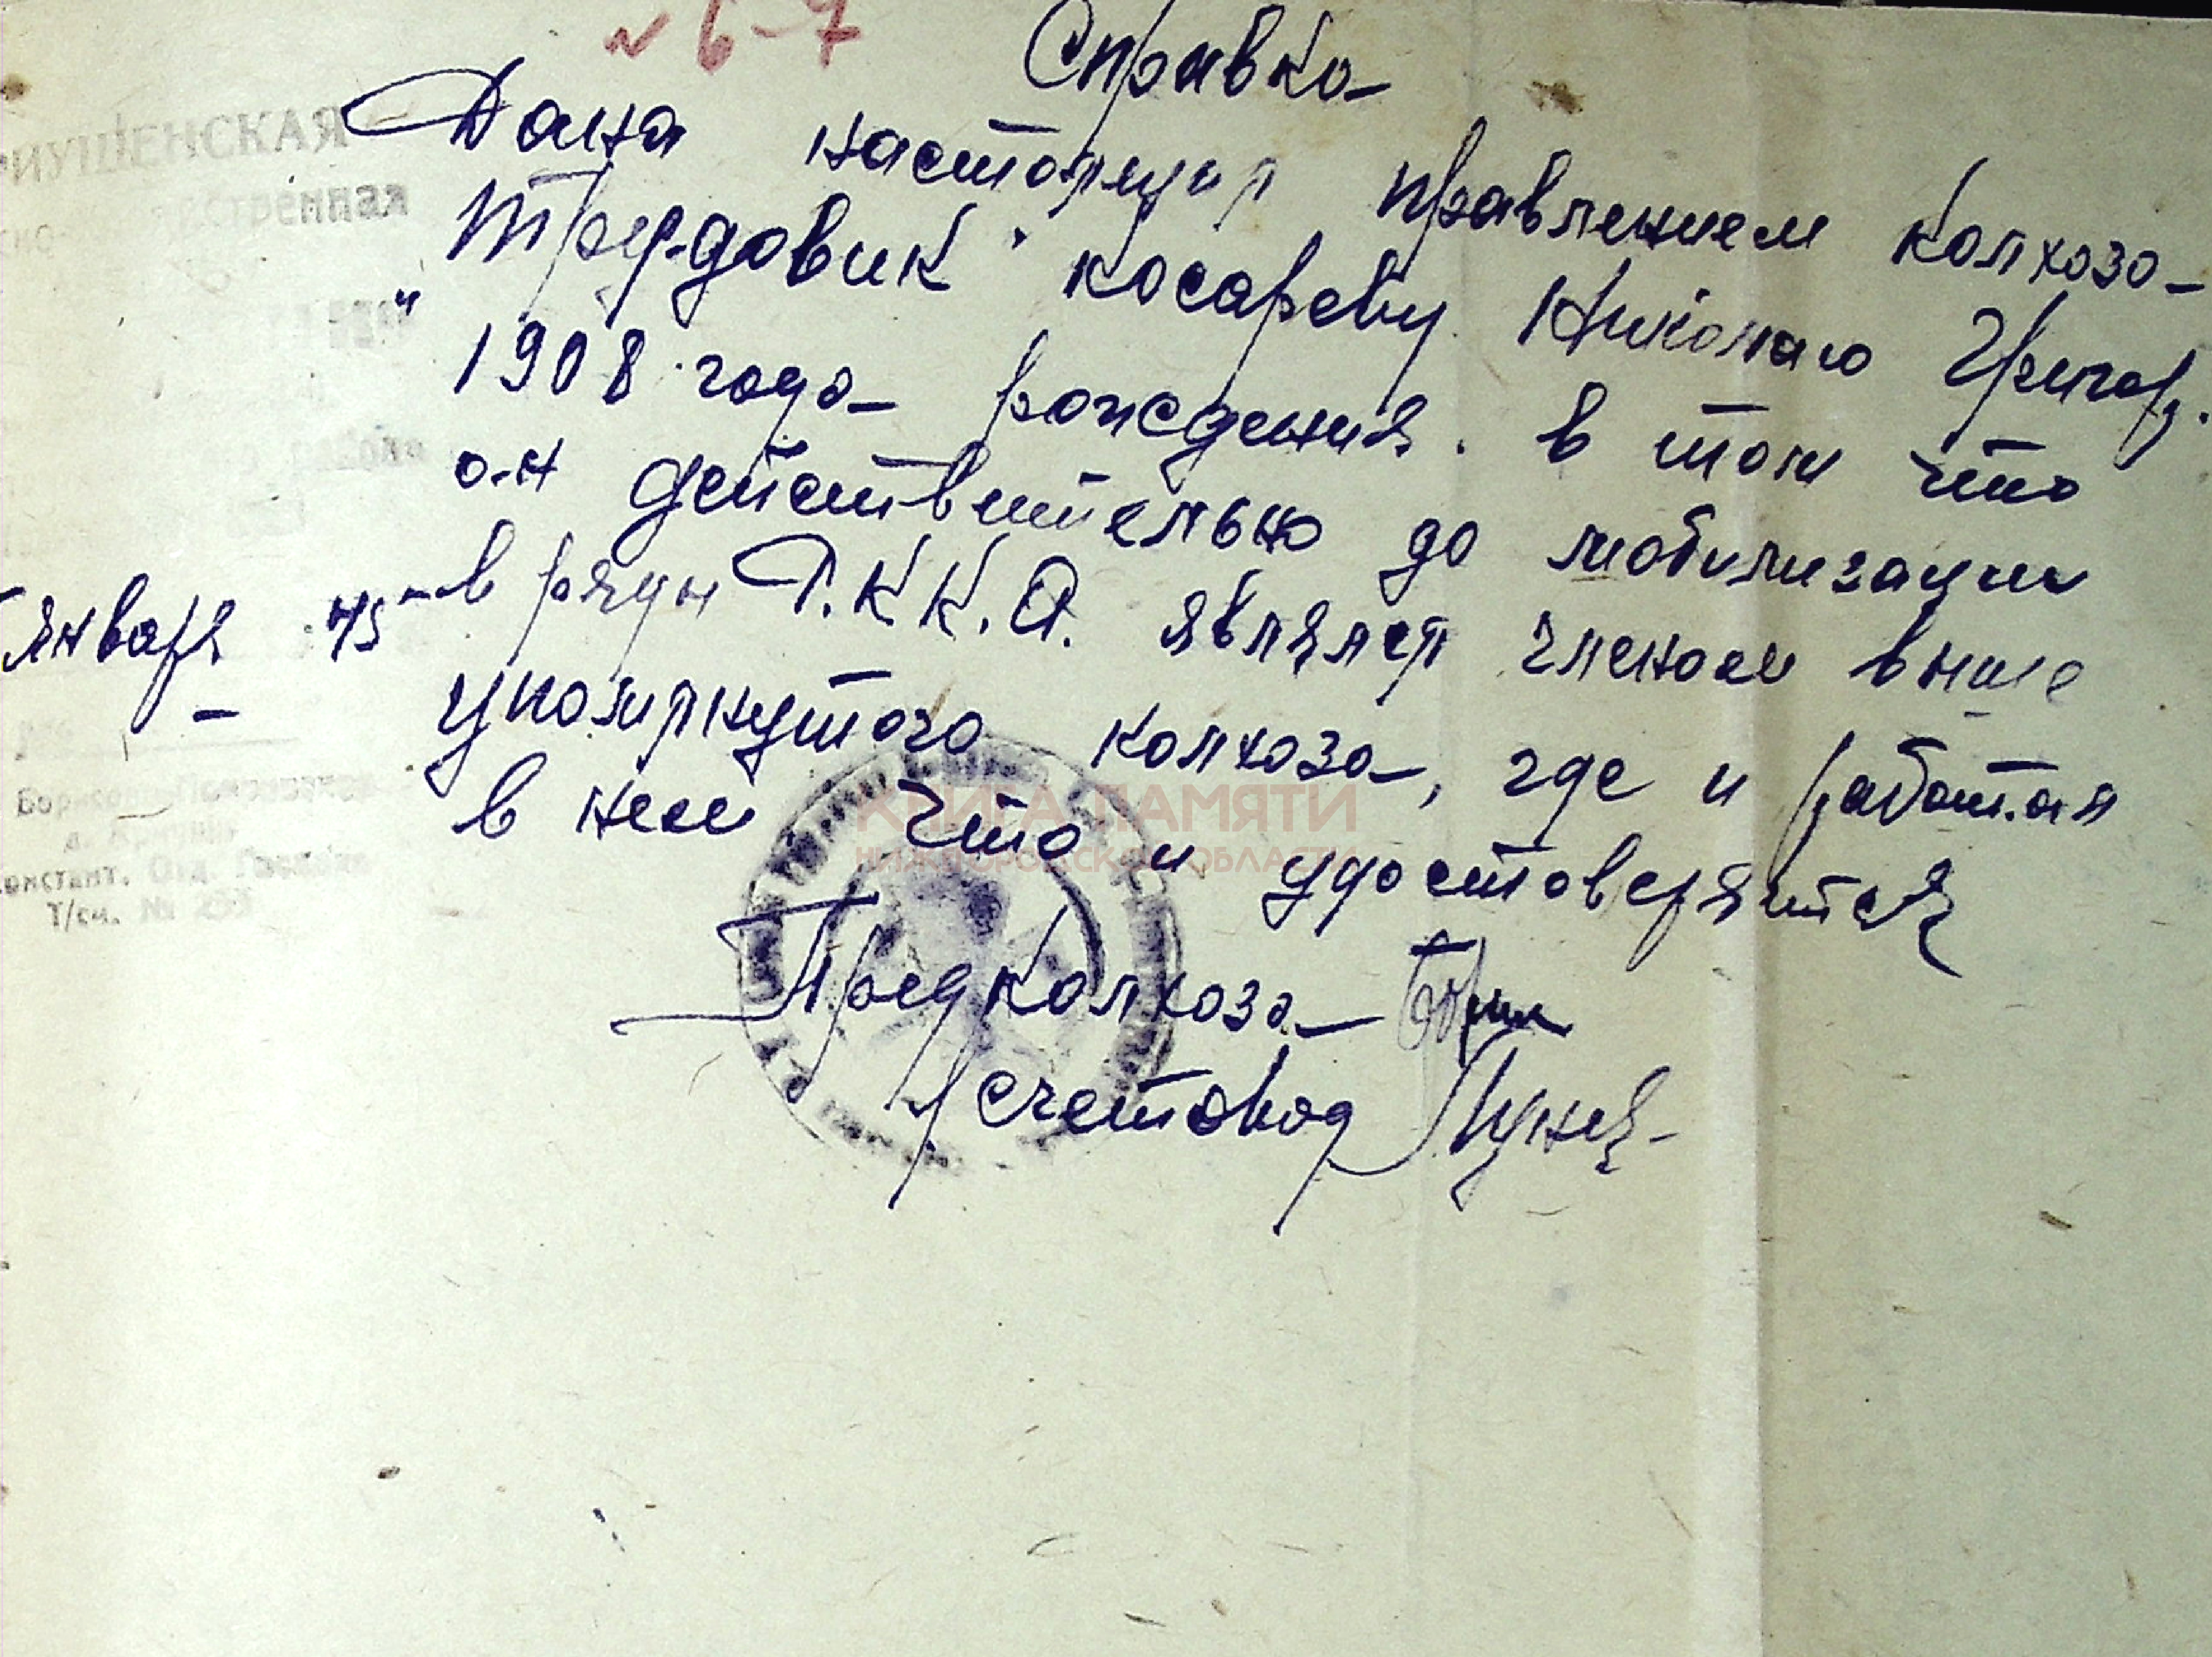 № 6-7
Справка
Дана настоящая правлением колхоза
"Трудовик" Косареву Николаю Григор.
1908 года рождения. в том что
он действительно до мобилизации
в ряды Р.К.К.А. являлся членом выше
упомянутого колхоза, где и работал
в нем что и удостоверяется
Предколхоза
счетовод
января 45
РИУШЕНСКАЯ
Т/сч. №
КНИГА ПАМЯТИ
НИЖЕГОРОДСКОЙ ОБЛАСТИ